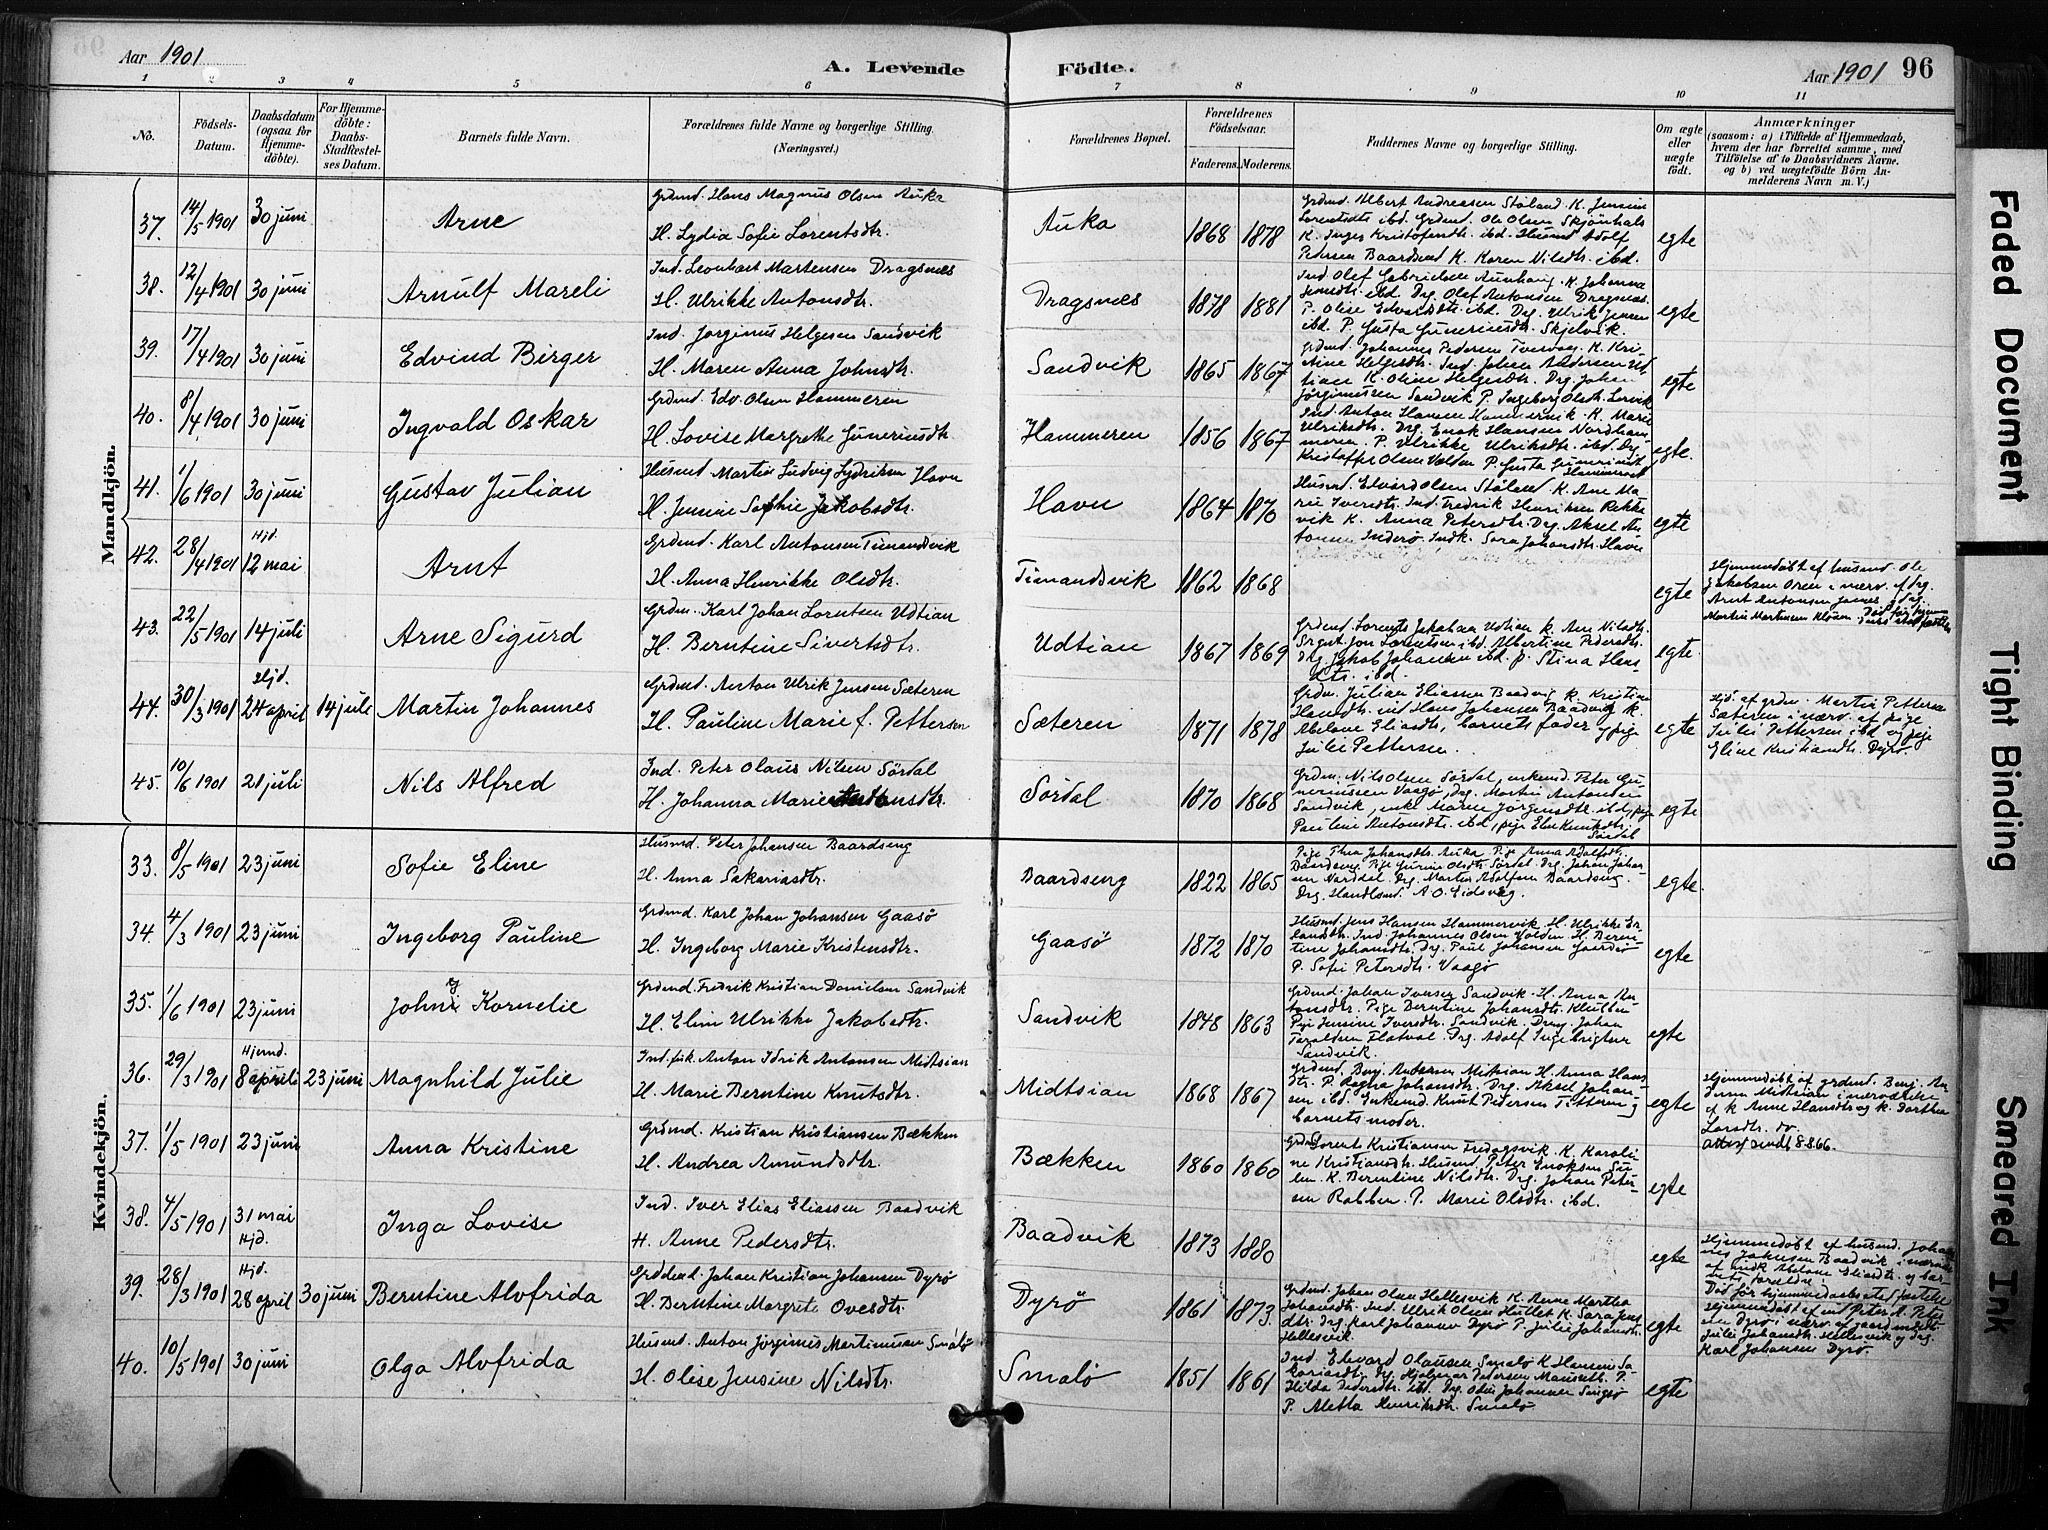 Aar 1901
A. Levende Födte.
Aar 1901 96
1 2 3 4 5 6 7 8 9 10 11
No.
Födsels-Datum.
Daabsdatum (ogsaa for Hjemme-döbte).
For Hjemme-döbte: Daabs-Stadfæstel-ses Datum.
Barnets fulde Navn.
Forældrenes fulde Navne og borgerlige Stilling. (Næringsvei.)
Forældrenes Bopæl.
Forældrenes Födselsaar.
Faderens. Moderens.
Faddernes Navne og borgerlige Stilling.
Om ægte eller uægte födt.
Anmærkninger
(saasom: a) i Tilfælde af Hjemmedaab,
hvem der har forrettet samme, med
Tilföielse af to Daabsvidners Navne.
og b) ved uægtefödte Börn An-
melderens Navn m. V.)
Mandkjön.
37. 14/5 1901 30 juni Arne
Grdmd. Hans Magnus Olsen Auka
H. Lydia Sofie Lorentsdtr.
Auka 1868 1878
Grdmd. Albert Andreassen Stöland. K. Jensine
Lorentsdtr ibd. Grdmd. Ole Olsen Skjönhals
K. Inger Kristofersdtr. ibd. Husmd Adolf
Pedersen Baardseng K. Karen Nilsdtr. ibd.
egte
38. 12/4 1901 30 juni Arnulf Mareli
Ind. Leonhart Martensen Dragsnæs
H. Ulrikke Antonsdtr.
Dragsnæs 1878 1881
Ind. Olef Gabrielsen Aunhaug. K. Johanna
ibd. Drg. Olef Antonsen Dragsnæs.
P. Olise Edvardsdtr. ibd. Drg. Ulrik Jensen
ibd. P. Gusta Guneriusdtr. Skjelvik.
egte
39. 17/4 1901 30 juni Edvind Birger
Ind. Jorginus Helgesen Sandvik
H. Maren Anna Johnsdtr.
Sandvik 1865 1867
Grdmd. Johannes Pedersen K. Kri-
stine Helgesdtr. Ind. Johan Andersen Ud-
tian K. Oline Helgesdtr. Drg. Johan
Jörginussen Sandvik P. Ingeborg Olsdtr.
egte
40. 8/4 1901 30 juni Ingvald Oskar
Grdmd. Edv. Olsen Hammeren
H. Lovise Margrethe Guneriusdtr.
Hammeren 1856 1867
Ind. Anton Hansen Hammervik. K. Marie
Ulriksdtr. Drg. Enok Hansen Nordham-
meren. P. Ulrikke Ulriksdtr. ibd. Drg.
Kristoffer Olsen Valden P. Gusta Guneriusdtr.
Hammervik
egte.
41. 1/6 1901 30 juni Gustav Julian
Husmd. Martin Ludvig Lydriksen Havn
H. Jensine Sophie Jakobsdtr.
Havn 1864 1870
Husmd. Edvard Olsen Stöland. K. Ane Ma-
rie Iversdtr. Ind. Fredrik Henriksen Rekke-
vik K. Anna Petersdtr. Drg. Aksel An-
tonsen Inderö. Indk. Sara Johansdtr. Havn
egte
42. 28/4 1901 Hjd. 12 mai Arnt
Grdmd. Karl Antonsen Timandsvik
H. Anna Henrikke Olsdtr.
Timandsvik 1862 1868
egte
Hjemmedöbt af husmd. Ole
Jakobsen Oren i nærv. af drg.
Arnt Antonsen og drg.
Martin Martinsen
43. 22/5 1901 14 juli Arne Sigurd
Grdm. Karl Johan Lorntsen Udtian
H. Berntine Sivertsdtr.
Udtian 1867 1869
Grdmd. Lorents Jakobsen Udtian k. Ane Nilsdtr.
Jon Lorentsen ibd. Albertine Pedersdtr.
drg. Jakob Johansen ibd. p. Stina Hans
dtr. ibd.
egte.
44. 30/3 1901 Hjd. 24 april 14 juli Martin Johannes
Grdmd. Anton Ulrik Jensen Sæteren
H. Pauline Marie f. Pettersen
Sæteren 1871 1878
Grdm. Julian Eliassen Baadvig k. Kristian
Hansdtr. ind Hans Johansen Baadvig k.
Abelone Eliasdtr, barnets fader og pige
Julie Pettersen.
egte
Hjd. af grdm. Martin Pettersen
Sæteren i nærv. af pige
Julie Pettersen ibd og pige
Eline Kristiansdtr. Dyrö.
45. 10/6 1901 21 juli Nils Alfred
Ind. Peter Olaus Nilsen Sördal
H. Johanna Marie Antonsdtr.
Sördal 1870 1868
Grdm. Nils Olsen Sördal, enkemd. Peter Gu-
neriussen Vaagö, drg. Martin Antonsen
Sandvik, enke Maren Jörgensdtr. ibd, pige
Pauline Antonsdtr. ibd, pige Else Knutsdtr.
Sördal
egte
Kvindekjön.
33. 8/5 1901 23 juni Sofie Eline
Husmd. Peter Johansen Baardseng
H. Anna Sakariasdtr.
Baardseng 1822 1865
Pige Thea Johansdtr. Auka. Pige Anna Adolfsdtr.
Baardseng Pige Gurine Olsdtr. Sördal. Drg. Johan Johan-
sen Norddal. Drg. Martin Adolfsen Baardseng.
Drg. Handlsmd. A. O. Eidsvåg.
egte.
34. 4/3 1901 23 juni Ingeborg Pauline
Grdmd. Karl Johan Johansen Gaasö
H. Ingeborg Marie Kristensdtr.
Gaasö 1872 1870
Husmd. Jens Hansen Hammervik. H. Ulrikke Er-
landsdtr. Ind. Johannes Olsen Valden H. Beren-
tine Johansdtr. Drg. Paul Johansen
P. Sofie Petersdtr. Vaagö
egte
35. 1/6 1901 23 juni Johny Kornelie
Grdmd. Fredrik Kristian Danielsen Sandvik
H. Elen Ulrikke Jakobsdtr.
Sandvik 1848 1863
Grdmd. Johan Iversen Sandvik. H. Anna An-
tonsdtr. Pige Berntine Johansdtr.
Pige Jensine Iversdtr. Sandvik. Dreng. Johan
Taraldsen Flatval. Drg. Adolf Ingebrigtsen
Sandvik.
egte
36. 29/3 1901 Hjemd. 8 april 23 juni Magnhild Julie
Ind. fisk. Anton Idrik Antonsen Midtsian
H. Marie Berntine Knutsdtr.
Midtsian 1868 1867
Grdmd. Benj. Andersen Mitsian H. Anna Hans
dtr. P. Ragna Johansdtr. Drg. Aksel Johan-
sen ibd. Enkemd. Knut Pedersen Titteren og
barnets moder.
egte
Hjemmedöbt af grdmd. Benj. An-
dersen Mitsian i nærværelse
af k Anne Hansdtr. og k. Dorthea
Larsdtr. do.
attest sendt 8.8.66.
37. 1/5 1901 23 juni Anna Kristine
Grdmd. Kristian Kristiansen Bækken
H. Andrea Amundsdtr.
Bækken 1860 1860
Grdmd. Lorents Kristiansen Fredagsvik. K. Karoli-
ne Kristiansdtr. Husmd. Peter Enoksen Su-
len. K. Berntine Nilsdtr. Drg. Johan Peter-
sen Rabben. P. Marie Olsdtr. ibd.
egte
38. 4/5 1901 31 mai Hjd. Inga Lovise
Ind. Iver Elias Eliassen Baadvik
H. Anne Pedersdtr.
Baadvik 1873 1880
egte
Hjemmedöbt af husmd. Johan-
nes Jakobsen Baadvik i nærværelse
af indk Abelone Eliasdtr. og bar-
nets forældre.
Död för hjemmedaabens stadfæstelse
39. 28/3 1901 Hjd. 28 april 30 juni Berntine Alvfrida
Grdmd. Johan Kristian Johansen Dyrö
H. Berntine Margrete Ovesdtr.
Dyrö 1861 1873.
Grdmd. Johan Olsen Hellesvik K. Anne Martha
Johansdtr. Ind. Ulrik Olsen Hullet K. Sara Jens
dtr. Drg. Karl Johansen Dyrö P. Julie Johansdtr.
Hellesvik.
egte
Hjemmedöbt af ind Peter A. Peter
sen Dyrö i nærv. af gaardmandsdtr.
Julie Johansdtr. Hellesvik og drg.
Karl Johansen Dyrö.
40. 10/5 1901 30 juni Olga Alvfrida
Husmd. Anton Jörginus Martinussen Smalö
H. Olise Jensine Nilsdtr.
Smalö 1851 1861
Ind. Edvard Olausen Smalö K. Hansine Sa-
kariasdtr. Drg. Hjalmar Pedersen P.
Hilda Pedersdtr. ibd. Drg. Odin Johannesen
P. Metta Henriksdtr. Smalö
egte
Faded Document
Tight Binding
Smeared Ink